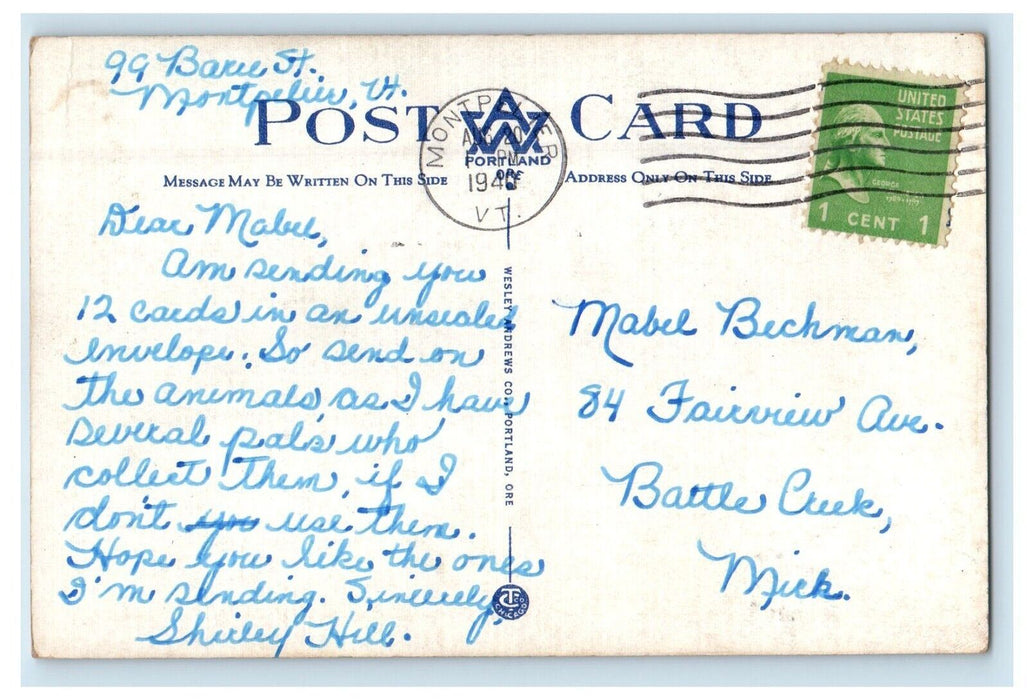 99 Barre St.
Montpelier, Vt.
POST CARD
AWA
PORTLAND
ORE.
MONTPELIER
AUG 20
PM
1940
VT.
UNITED
STATES
POSTAGE
GEORGE
1 CENT 1
MESSAGE MAY BE WRITTEN ON THIS SIDE
ADDRESS ONLY ON THIS SIDE
Dear Mabel,
Am sending you
12 cards in an unsealed
envelope. So send on
the animals, as I have
several pals who
collect them, if I
don't you use them.
Hope you like the ones
I'm sending. Sincerely,
Shirley Hill.
WESLEY ANDREWS CO., PORTLAND, ORE
CHICAGO
Mabel Bechman,
84 Fairview Ave.
Battle Creek,
Mich.